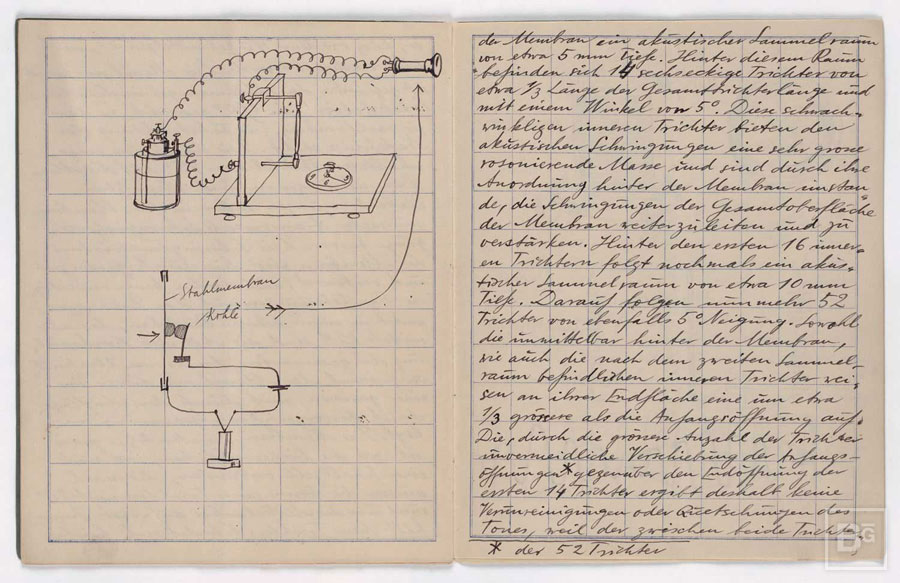 Stahlmembran
Kohle
der Membran ein akustischer Sammelraum
von etwa 5 mm Tiefe. Hinter diesem Raum
befinden sich 14 sechseckige Trichter von
etwa 1/3 Länge der Gesamttrichterlänge und
mit einem Winkel von 5°. Diese schwach-
winkligen inneren Trichter bieten den
akustischen Schwingungen eine sehr grosse
resonierende Masse und sind durch ihre
Anordnung hinter der Membran imstan-
de, die Schwingungen der Gesamtoberfläche
der Membran weiterzuleiten und zu
verstärken. Hinter den ersten 16 inner-
en Trichtern folgt nochmals ein akus-
tischer Sammelraum von etwa 10 mm
Tiefe. Darauf folgen nunmehr 52
Trichter von ebenfalls 5° Neigung. Sowohl
die unmittelbar hinter der Membran,
wie auch die nach dem zweiten Sammel-
raum befindlichen inneren Trichter wei-
sen an ihrer Endfläche eine um etwa
1/3 grössere als die Anfangsöffnung auf.
Die, durch die grössere Anzahl der Trichter
unvermeidliche Verschiebung der Anfangs-
öffnungen * gegenüber den Endöffnung der
ersten 14 Trichter ergibt deshalb keine
Verunreinigungen oder Quetschungen des
Tones, weil der zwischen beide
* der 52 Trichter
BG